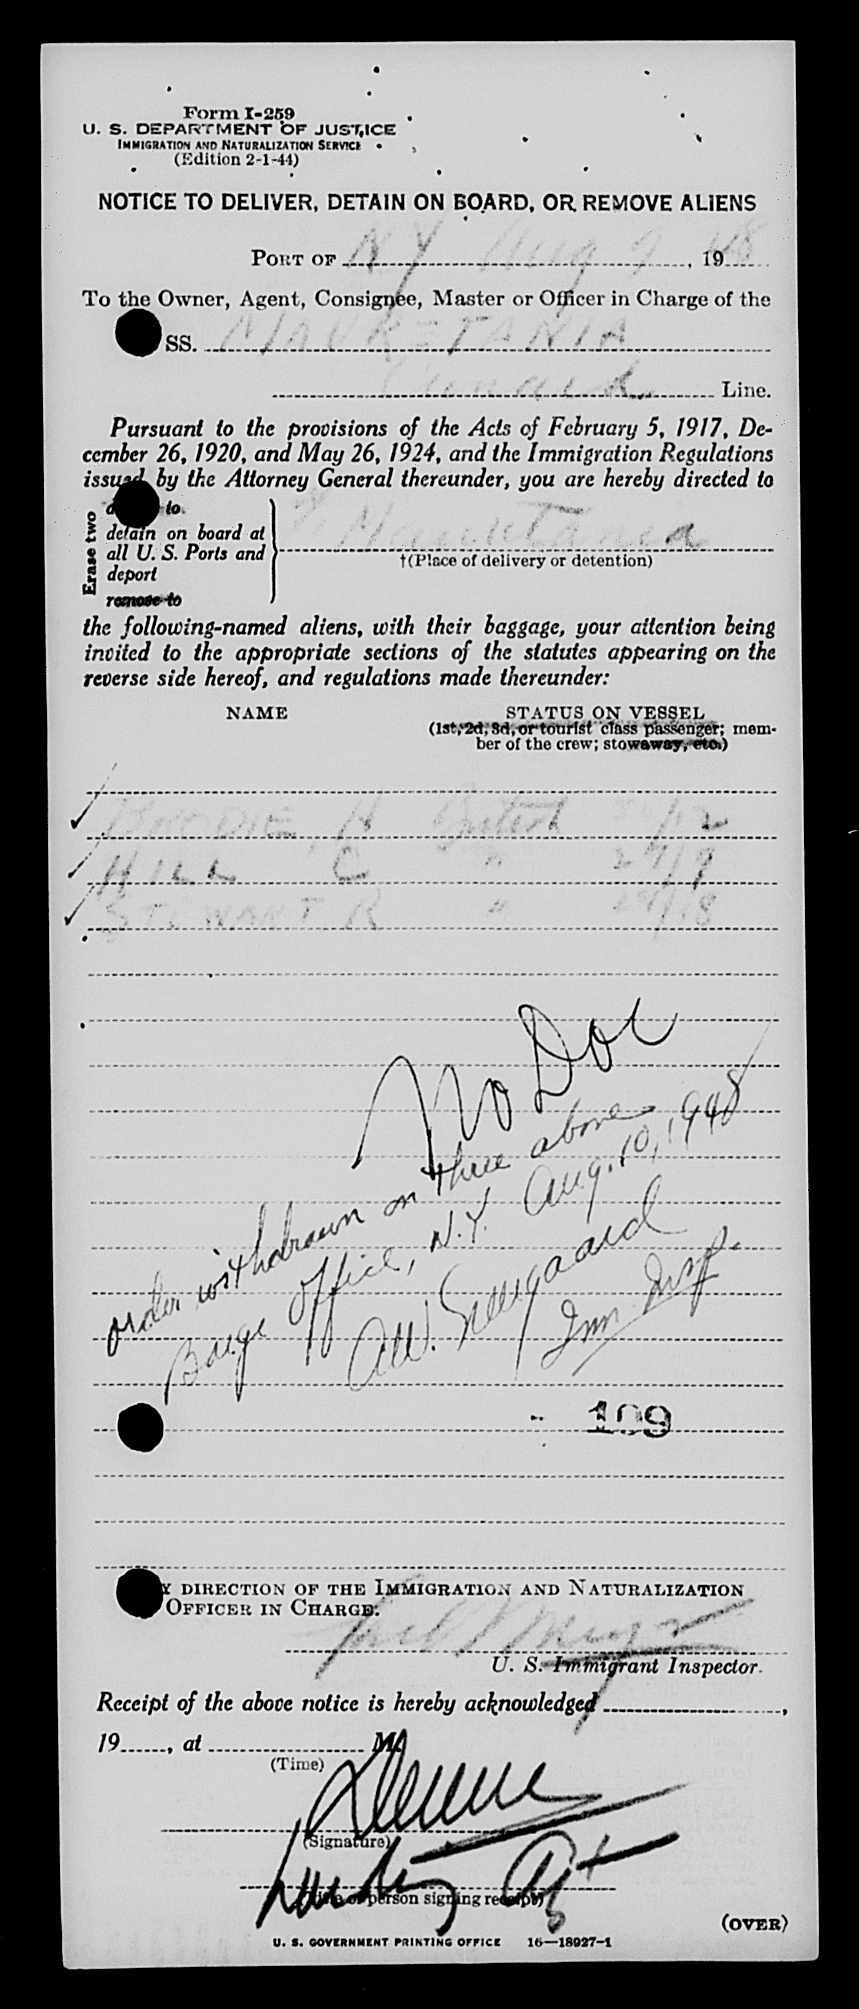 Form I-259
U. S. DEPARTMENT OF JUSTICE
IMMIGRATION AND NATURALIZATION SERVICE
(Edition 2-1-44)
NOTICE TO DELIVER, DETAIN ON BOARD, OR REMOVE ALIENS
PORT OF NY Aug 9, 1948
To the Owner, Agent, Consignee, Master or Officer in Charge of the
SS. MAURETANIA
Cunard Line.
Pursuant to the provisions of the Acts of February 5, 1917, De-
cember 26, 1920, and May 26, 1924, and the Immigration Regulations
issued by the Attorney General thereunder, you are hereby directed to
Erase two
to
detain on board at
all U. S. Ports and
deport
remove to
Mauretania
†(Place of delivery or detention)
the following-named aliens, with their baggage, your attention being
invited to the appropriate sections of the statutes appearing on the
reverse side hereof, and regulations made thereunder:
NAME STATUS ON VESSEL
(1st, 2d, 3d, or tourist class passenger; mem-
ber of the crew; stowaway, etc.)
H British /12
HILL C " 27/9
STEWART R " /18
No Doc
order withdrawn on three above
Barge Office, N.Y. Aug. 10, 1948
Imm Insp.
109
Y DIRECTION OF THE IMMIGRATION AND NATURALIZATION
OFFICER IN CHARGE:
U. S. Immigrant Inspector.
Receipt of the above notice is hereby acknowledged ,
19 , at M.
(Time)
(Signature)
Landing Agt
(Title of person signing receipt)
(OVER)
U. S. GOVERNMENT PRINTING OFFICE 16—18927-1